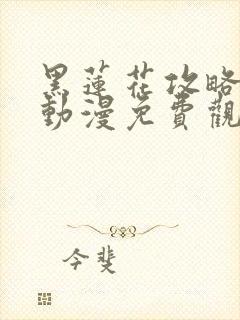 黑蓮花攻略
動漫免費觀
今斐